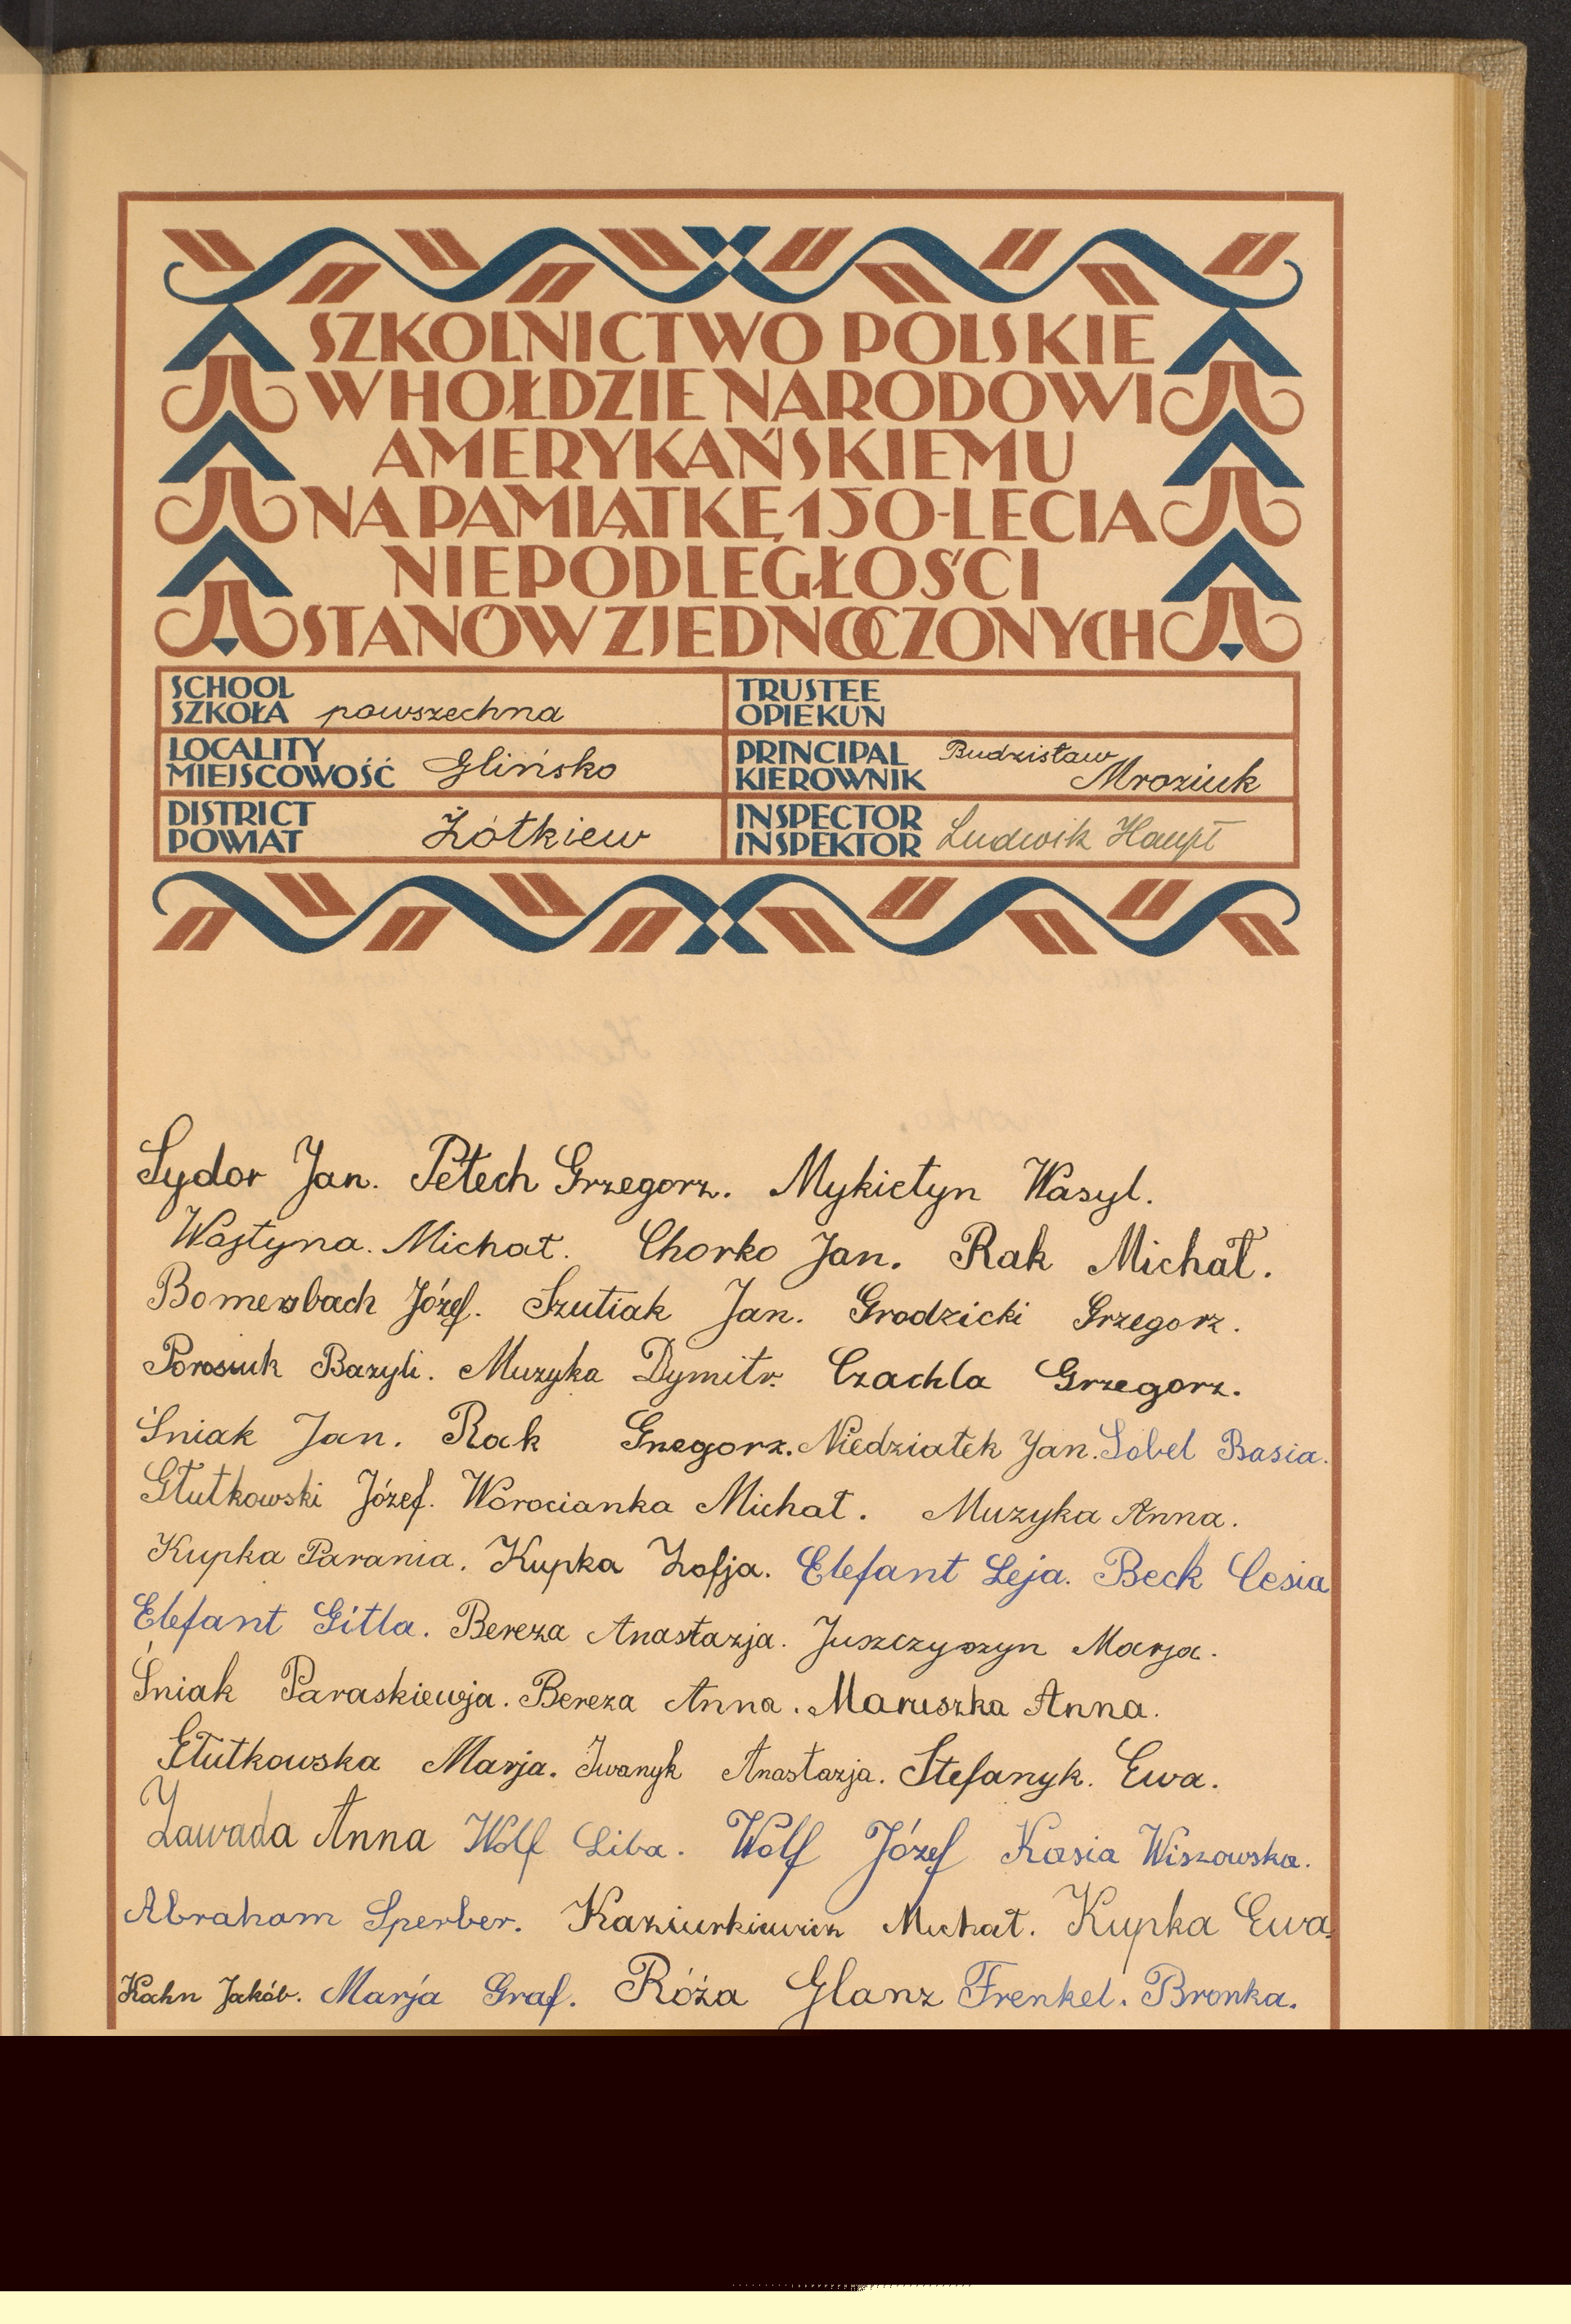 SZKOLNICTWO POLSKIE
W HOŁDZIE NARODOWI
AMERYKAŃSKIEMU
NA PAMIĄTKĘ 150-LECIA
NIEPODLEGŁOŚCI
STANÓW ZJEDNOCZONYCH
SCHOOL
SZKOŁA powszechna
TRUSTEE
OPIEKUN
LOCALITY
MIEJSCOWOŚĆ Glińsko
PRINCIPAL
KIEROWNIK Budzisław Mroziuk
DISTRICT
POWIAT Żółkiew
INSPECTOR
INSPEKTOR Ludwik Haupt
Sydor Jan. Petech Grzegorz. Mykietyn Wasyl.
Wojtyna. Michał. Chorko Jan. Rak Michał.
Bomersbach Józef. Szutiak Jan. Grodzicki Grzegorz.
Porosiuk Bazyli. Muzyka Dymitr. Czachla Grzegorz.
Śniak Jan. Rak Grzegorz. Niedziałek Jan. Sobel Basia.
Głutkowski Józef. Worocianka Michał. Muzyka Anna.
Kupka Parania. Kupka Zofja. Elefant Leja. Beck Cesia
Elefant Gitla. Bereza Anastazja. Juszczyszyn Marja.
Śniak Paraskiewja. Bereza Anna. Maruszka Anna.
Głutkowska Marja. Iwanyk Anastazja. Stefanyk. Ewa.
Zawada Anna Wolf Liba. Wolf Józef Kasia Wiszowska.
Abraham Sperber. Kaziurkiewicz Michał. Kupka Ewa.
Kahn Jakób. Marja Graf. Róża Glanz Frenkel. Bronka.